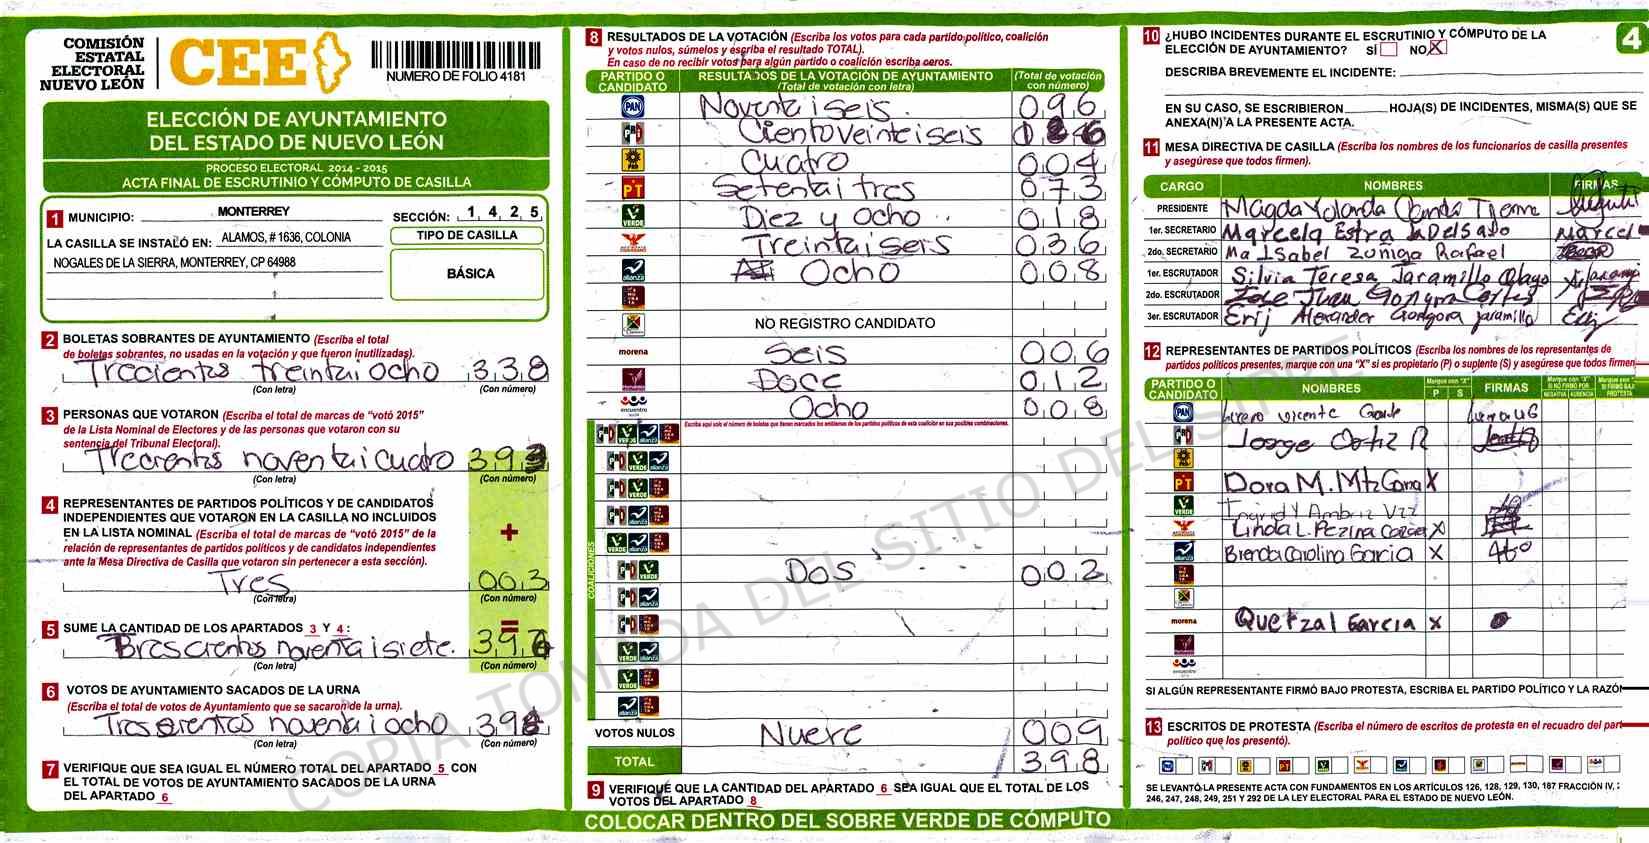 COMISIÓN
ESTATAL
ELECTORAL
NUEVO LEÓN
CEE
NUMERO DE FOLIO 4181
ELECCIÓN DE AYUNTAMIENTO
DEL ESTADO DE NUEVO LEÓN
PROCESO ELECTORAL 2014 - 2015
ACTA FINAL DE ESCRUTINIO Y CÓMPUTO DE CASILLA
1 MUNICIPIO: MONTERREY SECCIÓN: 1 4 2 5
LA CASILLA SE INSTALÓ EN: ALAMOS, # 1636, COLONIA
NOGALES DE LA SIERRA, MONTERREY, CP 64988
TIPO DE CASILLA
BÁSICA
2 BOLETAS SOBRANTES DE AYUNTAMIENTO (Escriba el total
de boletas sobrantes, no usadas en la votación y que fueron inutilizadas).
Trecientas treintai ocho 3 3 8
(Con letra) (Con número)
3 PERSONAS QUE VOTARON (Escriba el total de marcas de "votó 2015"
de la Lista Nominal de Electores y de las personas que votaron con su
sentencia del Tribunal Electoral).
Trecientas noventai cuatro 3 9
(Con letra) (Con número)
4 REPRESENTANTES DE PARTIDOS POLÍTICOS Y DE CANDIDATOS
INDEPENDIENTES QUE VOTARON EN LA CASILLA NO INCLUIDOS
EN LA LISTA NOMINAL (Escriba el total de marcas de "votó 2015" de la
relación de representantes de partidos políticos y de candidatos independientes
ante la Mesa Directiva de Casilla que votaron sin pertenecer a esta sección).
+
Tres 0 0 3
(Con letra) (Con número)
=
5 SUME LA CANTIDAD DE LOS APARTADOS 3 Y 4 :
noventai siete. 3 9
(Con letra) (Con número)
6 VOTOS DE AYUNTAMIENTO SACADOS DE LA URNA
(Escriba el total de votos de Ayuntamiento que se sacaron de la urna).
noventai ocho 3 9 8
(Con letra) (Con número)
7 VERIFIQUE QUE SEA IGUAL EL NÚMERO TOTAL DEL APARTADO 5 CON
EL TOTAL DE VOTOS DE AYUNTAMIENTO SACADOS DE LA URNA
DEL APARTADO 6
8 RESULTADOS DE LA VOTACIÓN (Escriba los votos para cada partido político, coalición
y votos nulos, súmelos y escriba el resultado TOTAL).
En caso de no recibir votos para algún partido o coalición escriba ceros.
PARTIDO O CANDIDATO RESULTADOS DE LA VOTACIÓN DE AYUNTAMIENTO (Total de votación con letra) (Total de votación con número)
PAN Noventai seis 0 9 6
PRD Cientoveinteiseis 1 2 6
PRD Cuatro 0 0 4
PT Setentai tres 0 7 3
VERDE Diez y ocho 0 1 8
Treintai seis 0 3 6
alianza Ocho 0 0 8
NO REGISTRO CANDIDATO
morena Seis 0 0 6
Doce 0 1 2
encuentro Ocho 0 0 8
Escriba aquí solo el número de boletas que tienen marcados los emblemas de los partidos políticos de esta coalición en sus posibles combinaciones.
COALICIONES
VERDE Dos 0 0 2
VOTOS NULOS Nueve 0 0 9
TOTAL 3 9 8
9 VERIFIQUE QUE LA CANTIDAD DEL APARTADO 6 SEA IGUAL QUE EL TOTAL DE LOS
VOTOS DEL APARTADO 8
COLOCAR DENTRO DEL SOBRE VERDE DE CÓMPUTO
4
10 ¿HUBO INCIDENTES DURANTE EL ESCRUTINIO Y CÓMPUTO DE LA
ELECCIÓN DE AYUNTAMIENTO? SÍ NO X
DESCRIBA BREVEMENTE EL INCIDENTE:
EN SU CASO, SE ESCRIBIERON HOJA(S) DE INCIDENTES, MISMA(S) QUE SE
ANEXA(N) A LA PRESENTE ACTA.
11 MESA DIRECTIVA DE CASILLA (Escriba los nombres de los funcionarios de casilla presentes
y asegúrese que todos firmen).
CARGO NOMBRES FIRMAS
PRESIDENTE Magda Yolanda
1er. SECRETARIO Marcela Estrada Delgado Marcel
2do. SECRETARIO Ma Isabel Zuñiga Rafael
1er. ESCRUTADOR Silvia Teresa Jaramillo
2do. ESCRUTADOR Jose Juan Gongora Cortes
3er. ESCRUTADOR Erij Alexander Gongora jaramillo
12 REPRESENTANTES DE PARTIDOS POLÍTICOS (Escriba los nombres de los representantes de
partidos políticos presentes, marque con una "X" si es propietario (P) o suplente (S) y asegúrese que todos firmen
PARTIDO O CANDIDATO NOMBRES Marque con "X" P S FIRMAS
PAN Vicente
Jorge Ortiz R
PT Dora M. Mtz X
VERDE Ingrid Y Ambriz Vzz
Linda L. X
alianza Brenda Carolina Garcia X
morena Quetzal Garcia X
encuentro
SI ALGÚN REPRESENTANTE FIRMÓ BAJO PROTESTA, ESCRIBA EL PARTIDO POLÍTICO Y LA RAZÓN
13 ESCRITOS DE PROTESTA (Escriba el número de escritos de protesta en el recuadro del part
político que los presentó).
SE LEVANTÓ LA PRESENTE ACTA CON FUNDAMENTOS EN LOS ARTÍCULOS 126, 128, 129, 130, 187 FRACCIÓN IV,
246, 247, 248, 249, 251 Y 292 DE LA LEY ELECTORAL PARA EL ESTADO DE NUEVO LEÓN.
COPIA TOMADA DEL SITIO DEL SIPRE